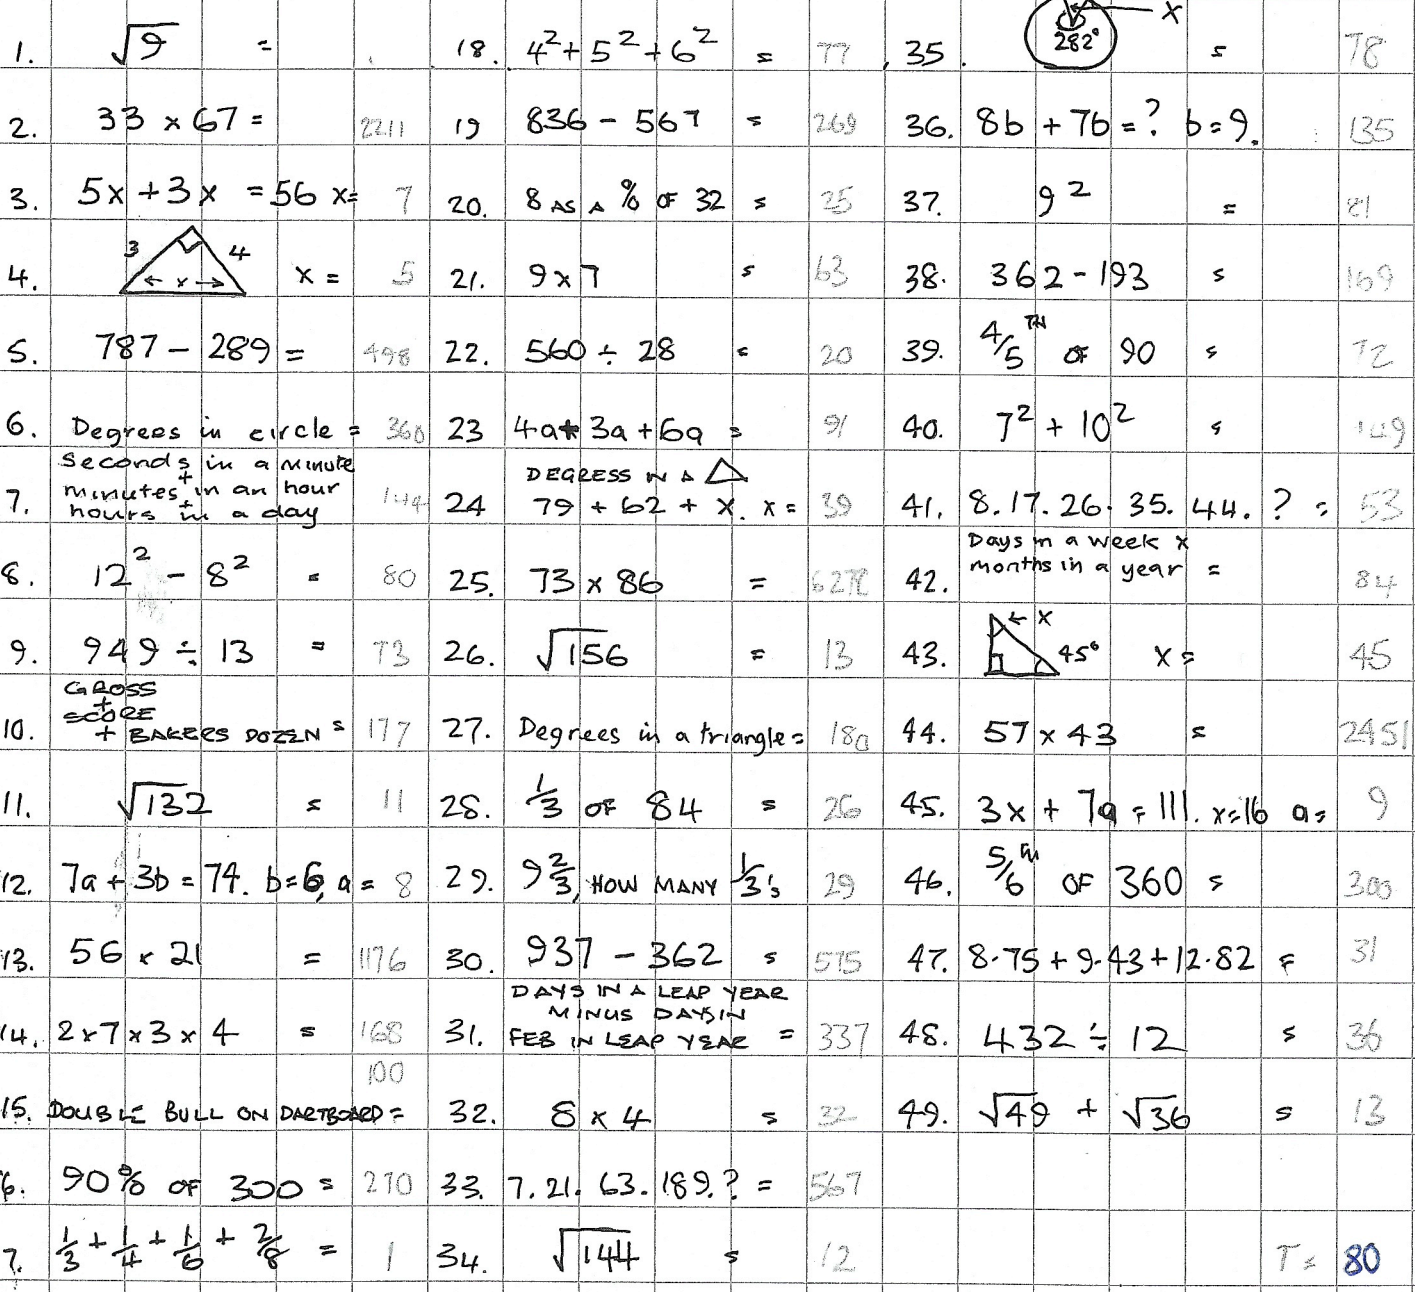 1. √9 =
2. 33 × 67 = 2211
3. 5x + 3x = 56 x= 7
4. 3 4 x x = 5
5. 787 - 289 = 498
6. Degrees in circle = 360
7. Seconds in a minute
+
minutes in an hour
+
hours in a day 144
8. 12² - 8² = 80
9. 949 ÷ 13 = 73
10. GROSS
+
SCORE
+ BAKERS DOZEN = 177
11. √132 = 11
12. 7a + 3b = 74. b=6, a = 8
13. 56 × 21 = 1176
14. 2×7×3×4 = 168
15. DOUBLE BULL ON DARTBOARD = 100
6. 90% OF 300 = 270
7. 1/3 + 1/4 + 1/6 + 2/8 = 1
18. 4² + 5² + 6² = 77
19 836 - 567 = 269
20. 8 AS A % OF 32 = 25
21. 9 × 7 = 63
22. 560 ÷ 28 = 20
23 4a + 3a + 6a = 91
24 DEGRESS IN A △
79 + 62 + x. x = 39
25. 73 × 86 = 6278
26. √156 = 13
27. Degrees in a triangle = 180
28. 1/3 OF 84 = 26
29. 9 2/3, HOW MANY 1/3's 29
30. 937 - 362 = 575
31. DAYS IN A LEAP YEAR
MINUS DAYS IN
FEB IN LEAP YEAR = 337
32. 8 × 4 = 32
33. 7. 21. 63. 189. ? = 567
34. √144 = 12
35. 282° x = 78
36. 8b + 7b = ? b = 9. 135
37. 9² = 81
38. 362 - 193 = 169
39. 4/5 TH OF 90 = 72
40. 7² + 10² = 149
41. 8. 17. 26. 35. 44. ? = 53
42. Days in a week ×
months in a year = 84
43. x 45° x = 45
44. 57 × 43 = 2451
45. 3x + 7a = 111. x=16 a= 9
46. 5/6 OF 360 = 300
47. 8.75 + 9.43 + 12.82 = 31
48. 432 ÷ 12 = 36
49. √49 + √36 = 13
T = 80